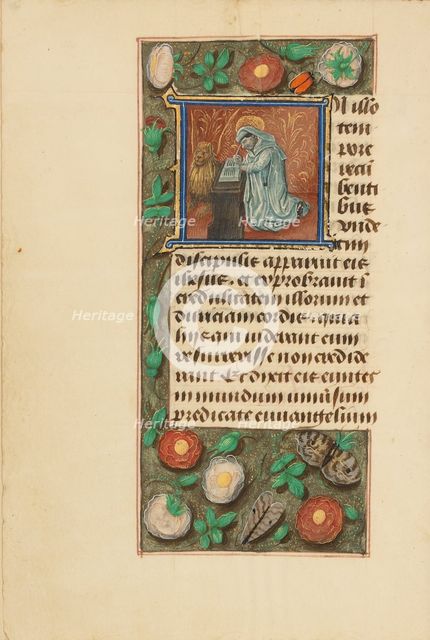 N illo
tem
pore
recū
benti
bus
unde
cim
discipulis apparuit eis
ihesus et exprobravit ī
credulitatem illorum et
duriciam cordis quia
viderant eum
resurrexisse non credide
rant Et dixit eis euntes
in mundum universum
predicate euvangelium
Heritage Heritage
Heritage Heritage
Heritage Heritage